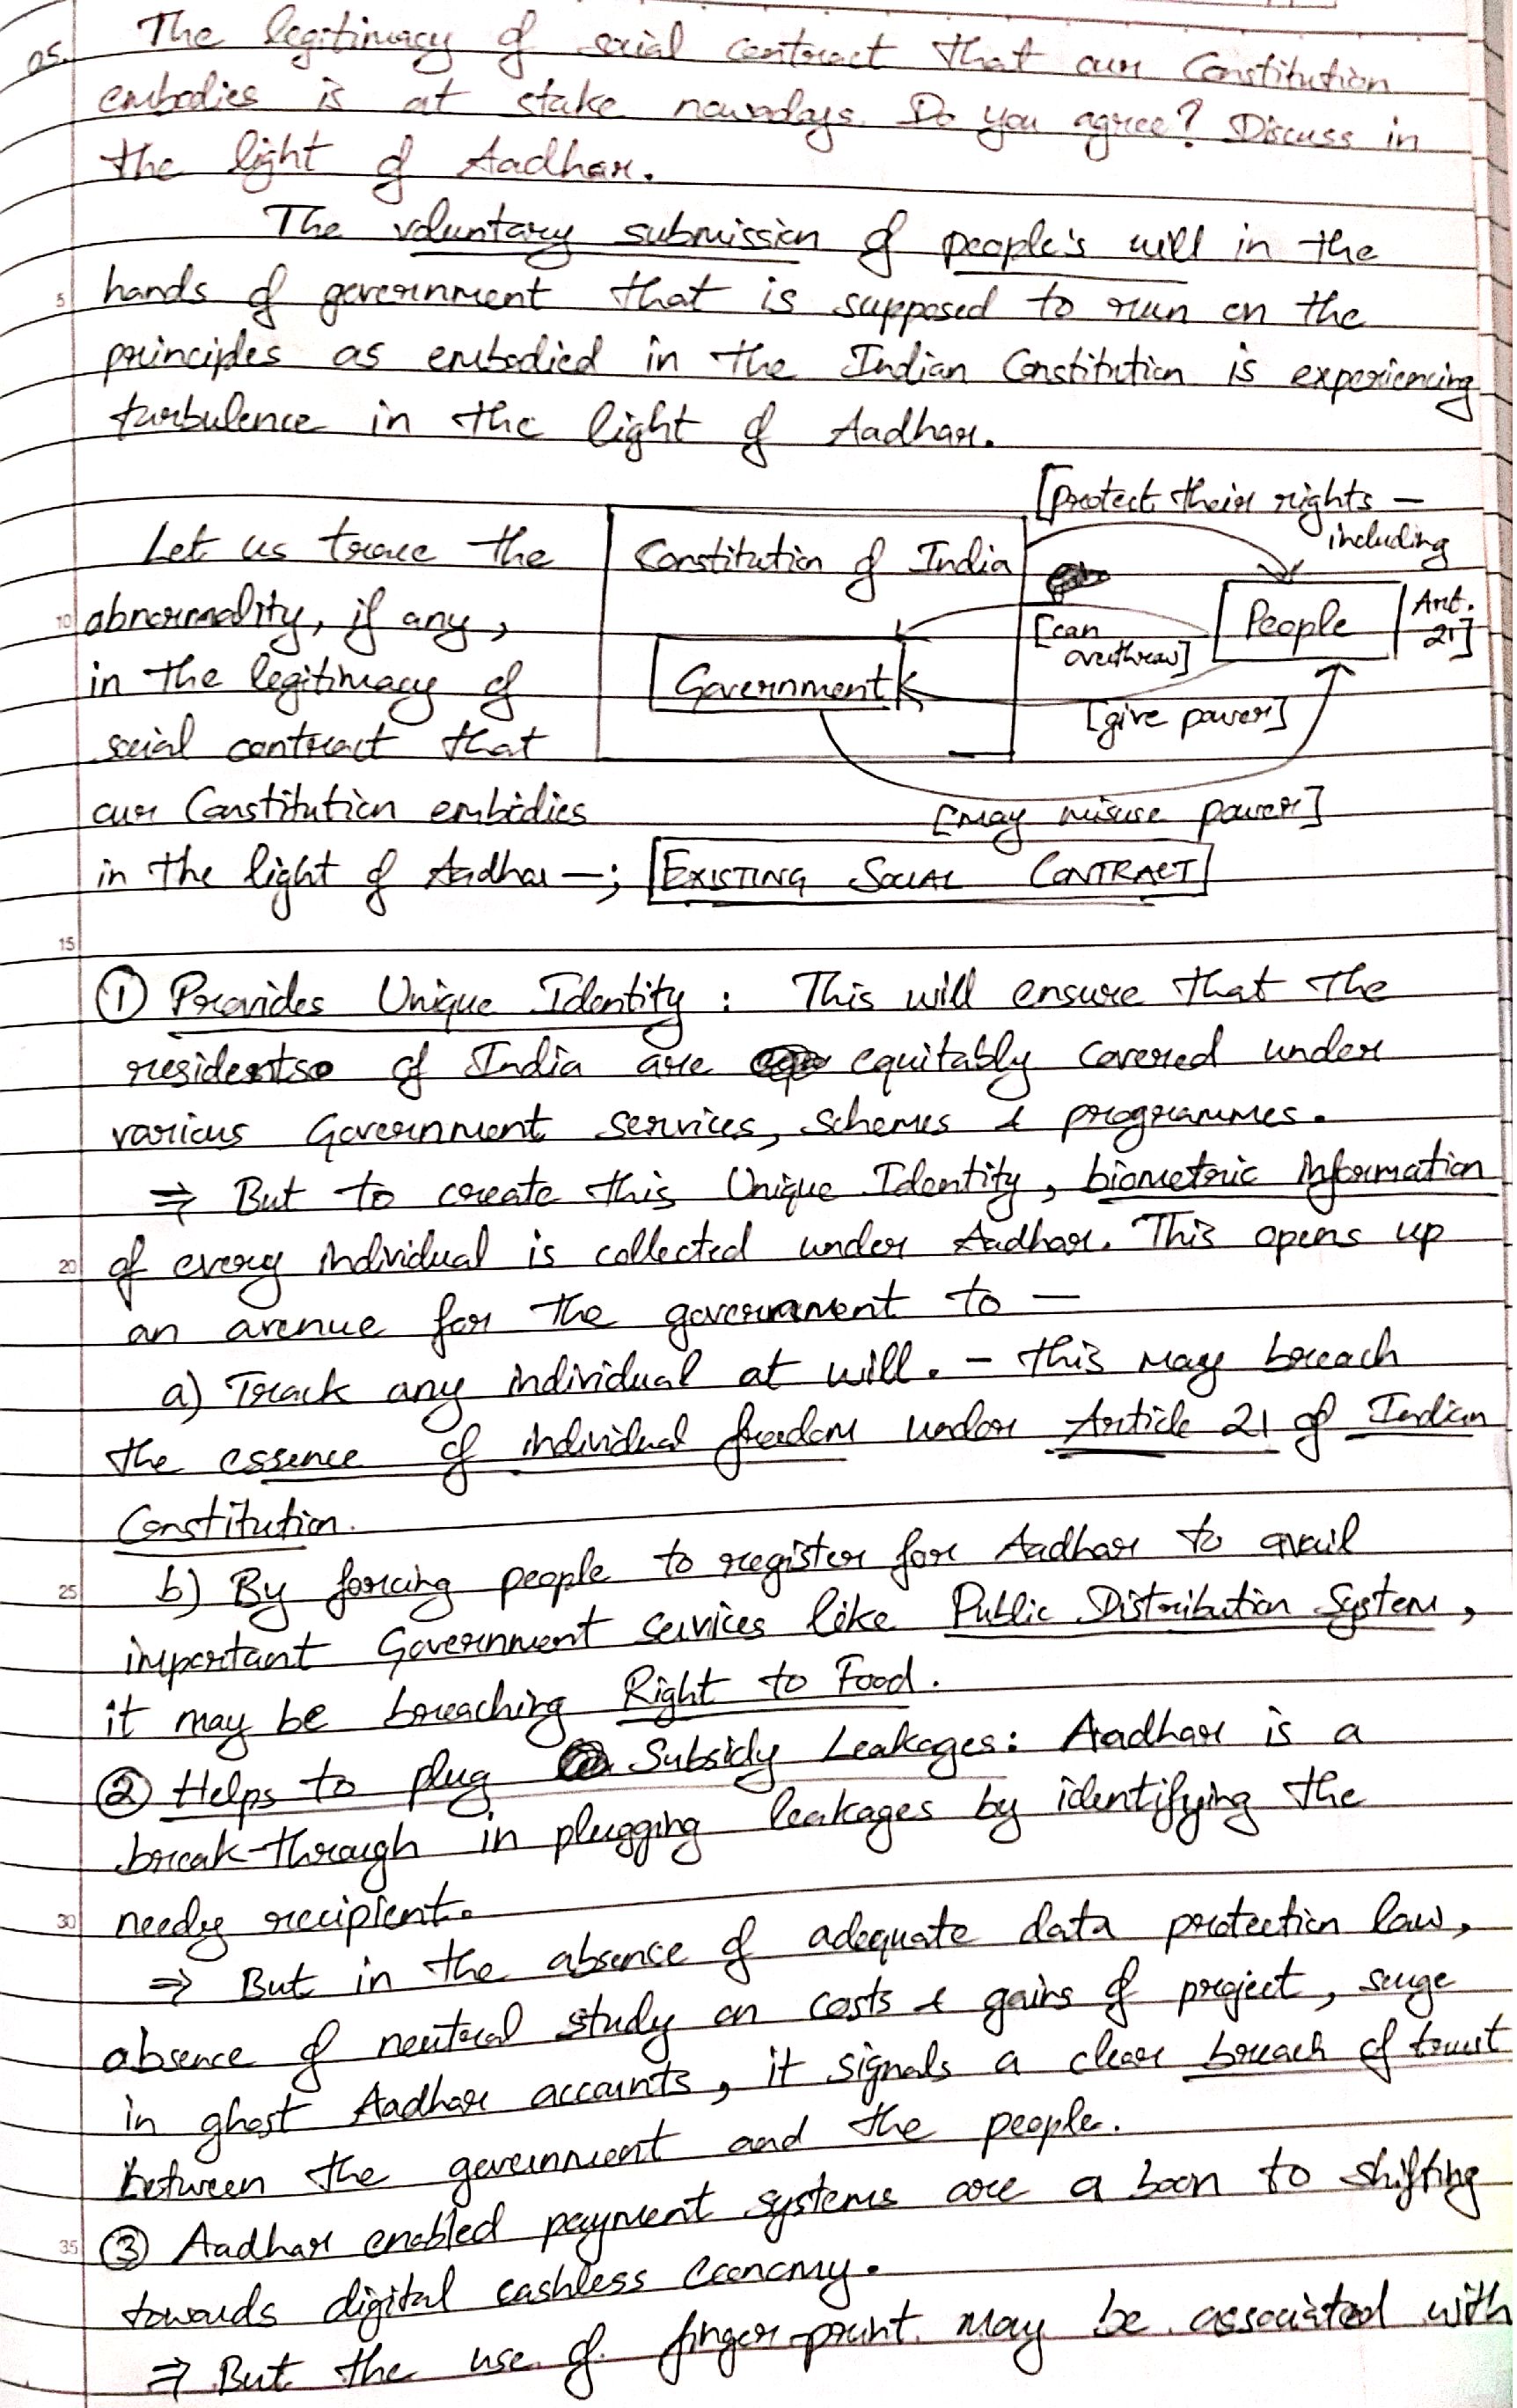 05. The legitimacy of social contract that our Constitution
embodies is at stake nowadays. Do you agree? Discuss in
the light of Aadhar.
The voluntary submission of people's will in the
5 hands of government that is supposed to run on the
principles as embodied in the Indian Constitution is experiencing
turbulence in the light of Aadhar.
[protect their rights —
including
Art.
21]
Let us trace the
10 abnormality, if any,
in the legitimacy of
social contract that
our Constitution embodies
in the light of Aadhar —;
Constitution of India
Government
People
[can
overthrow]
[give power]
[may misuse power]
EXISTING SOCIAL CONTRACT
15
① Provides Unique Identity : This will ensure that the
residents of India are equitably covered under
various Government services, schemes & programmes.
⇒ But to create this Unique Identity, biometric information
20 of every individual is collected under Aadhar. This opens up
an avenue for the government to —
a) Track any individual at will. – this may breach
the essence of individual freedom under Article 21 of Indian
Constitution.
25 b) By forcing people to register for Aadhar to avail
important Government services like Public Distribution System,
it may be breaching Right to Food.
② Helps to plug Subsidy Leakages: Aadhar is a
break-through in plugging leakages by identifying the
30 needy recipient.
⇒ But in the absence of adequate data protection law,
absence of neutral study on costs & gains of project, surge
in ghost Aadhar accounts, it signals a clear breach of trust
between the government and the people.
35 ③ Aadhar enabled payment systems are a boon to shifting
towards digital cashless economy.
⇒ But the use of finger-print may be associated with